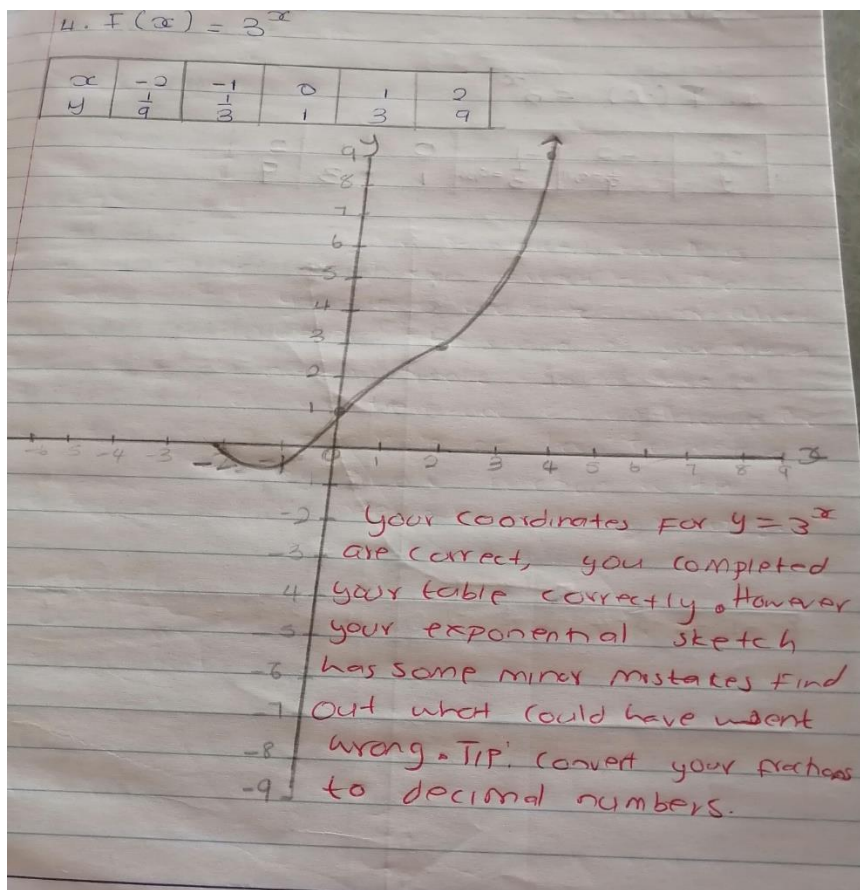 4. F(x) = 3^x
x -2 -1 0 1 2
y 1/9 1/3 1 3 9
y
9
8
7
6
5
4
3
2
1
-6 -5 -4 -3 -2 -1 0 1 2 3 4 5 6 7 8 9 x
-2
-3
4
-5
-6
-7
-8
-9
Your coordinates For y = 3^x
are correct, you completed
your table correctly. However
your exponential sketch
has some minor mistakes find
out what could have went
wrong. TIP: convert your fractions
to decimal numbers.